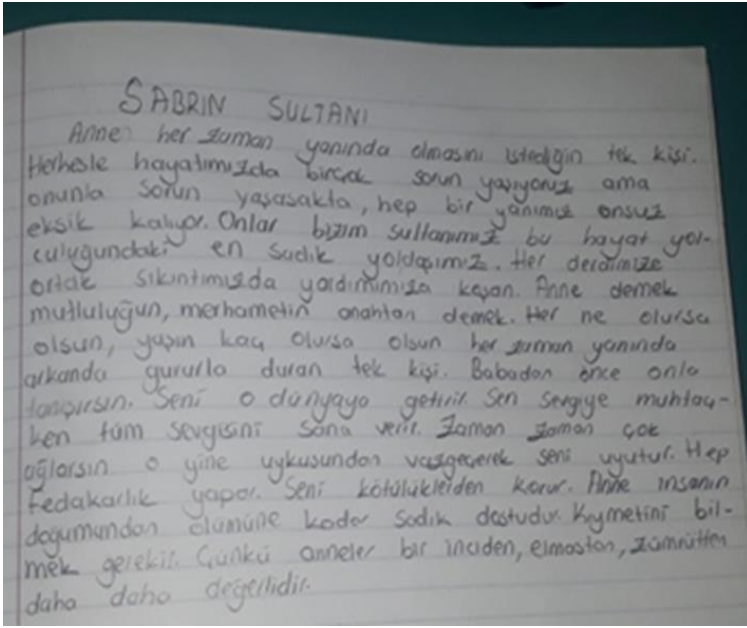 SABRIN SULTANI
Anne: her zaman yanında olmasını istediğin tek kişi.
Herkesle hayatımızda birçok sorun yaşıyoruz ama
onunla sorun yaşasakta, hep bir yanımız onsuz
eksik kalıyor. Onlar bizim sultanımız bu hayat yol-
culuğundaki en sadık yoldaşımız. Her derdimize
ortak sıkıntımızda yardımımıza koşan. Anne demek
mutluluğun, merhametin anahtarı demek. Her ne olursa
olsun, yaşın kaç olursa olsun her zaman yanında
arkanda gururla duran tek kişi. Babadan önce onla
tanışırsın. Seni o dünyaya getirir. Sen sevgiye muhtaç-
ken tüm sevgisini sana verir. Zaman zaman çok
ağlarsın o yine uykusundan vazgeçerek seni uyutur. Hep
fedakarlık yapar. Seni kötülükleden korur. Anne insanın
doğumundan ölümüne kadar sadık dostudur. Kıymetini bil-
mek gerekir. Çünkü anneler bir inciden, elmastan, zümrütten
daha daha değerlidir.